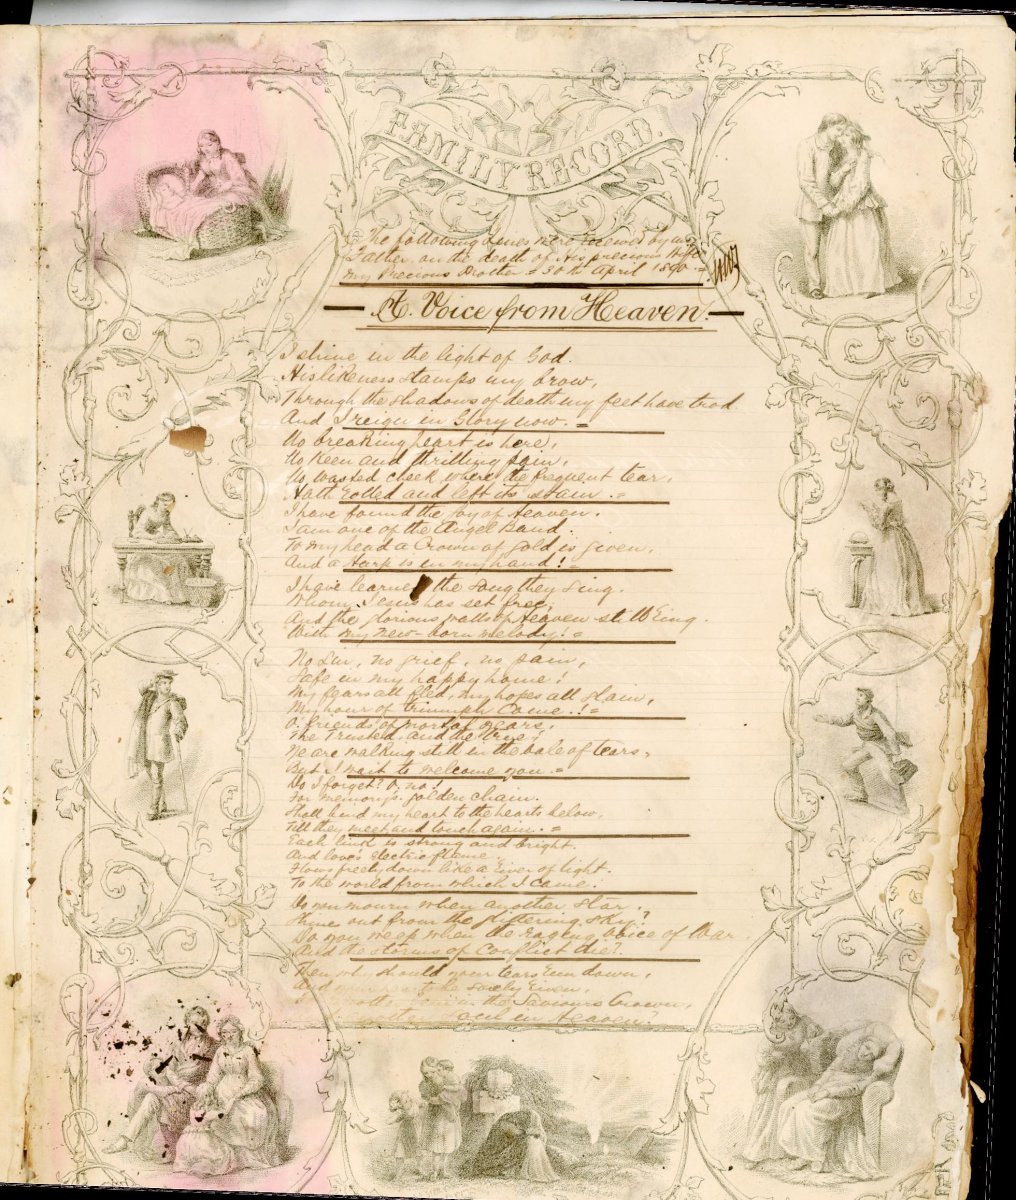 FAMILY RECORD.
The following lines were viewed by us
Father on the death of His precious Wife
my Precious Mother = 30th April 1890 =
A. Voice from Heaven.
I shine in the light of God.
His likeness stamps my brow,
Through the shadows of death my feet have trod
And I reign in Glory now. =
No breaking heart is here,
No keen and thrilling pain,
No wasted cheek where the frequent tear,
Hath rolled and left its stain. =
I have found the joy of Heaven.
I am one of the Angel Band.
To my head a Crown of gold is given,
And a Harp is in my hand! =
I have learned the song they sing.
Whom Jesus has set free,
And the glorious walls of Heaven still Ring.
With my new-born melody! =
No Sin, no grief, no pain,
Safe in my happy home!
My fears all fled, my hopes all slain,
My hour of triumph Come.! =
O, friends of mortal years,
The Trusted and the true!
We are walking still in the vale of tears,
But I wait to welcome you. =
Do I forget? O, no!
For memory's golden chain.
Shall bind my heart to the hearts below,
Till they meet and touch again. =
Each link is strong and bright.
And love's electric flame,
Flows freely down like a river of light.
To the world from which I came.
Do you mourn when another star.
Shine out from the glittering sky?
Do you weep when the raging voice of War.
And the storms of Conflict die?
Then why should your tears run down,
And your heart be sorely Riven,
For another gem in the Saviours Crown,
another Soul in Heaven?